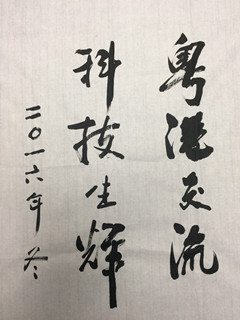 粤港交流
科技生辉
二〇一六年冬